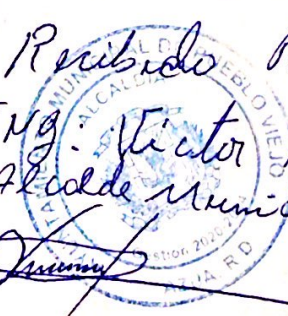 Recibido
ING: Victor
Alcalde Munic
MUNICIPAL DE PUEBLO VIEJO
ALCALDIA
AZUA, R.D.